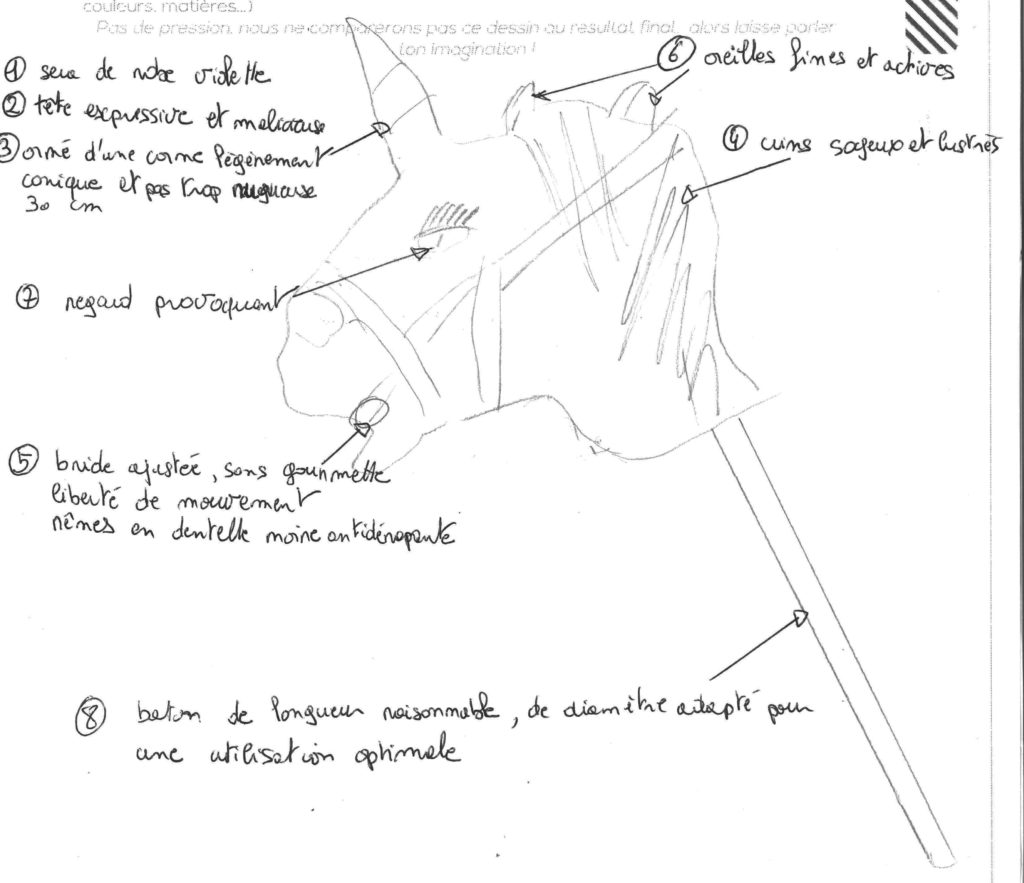 couleurs, matières...)
Pas de pression, nous ne comparerons pas ce dessin au resultat final, alors laisse parler
ton imagination !
① sera de robe violette
② tête expressive et malicieuse
③ orné d'une corne légèrement
conique et pas trop rugueuse
30 cm
⑥ oreilles fines et actives
④ crins soyeux et lustrés
⑦ regard provoquant
⑤ bride ajustée, sans gourmette
liberté de mouvement
rênes en dentelle noire antidérapante
⑧ baton de longueur raisonnable, de diamètre adapté pour
une utilisation optimale